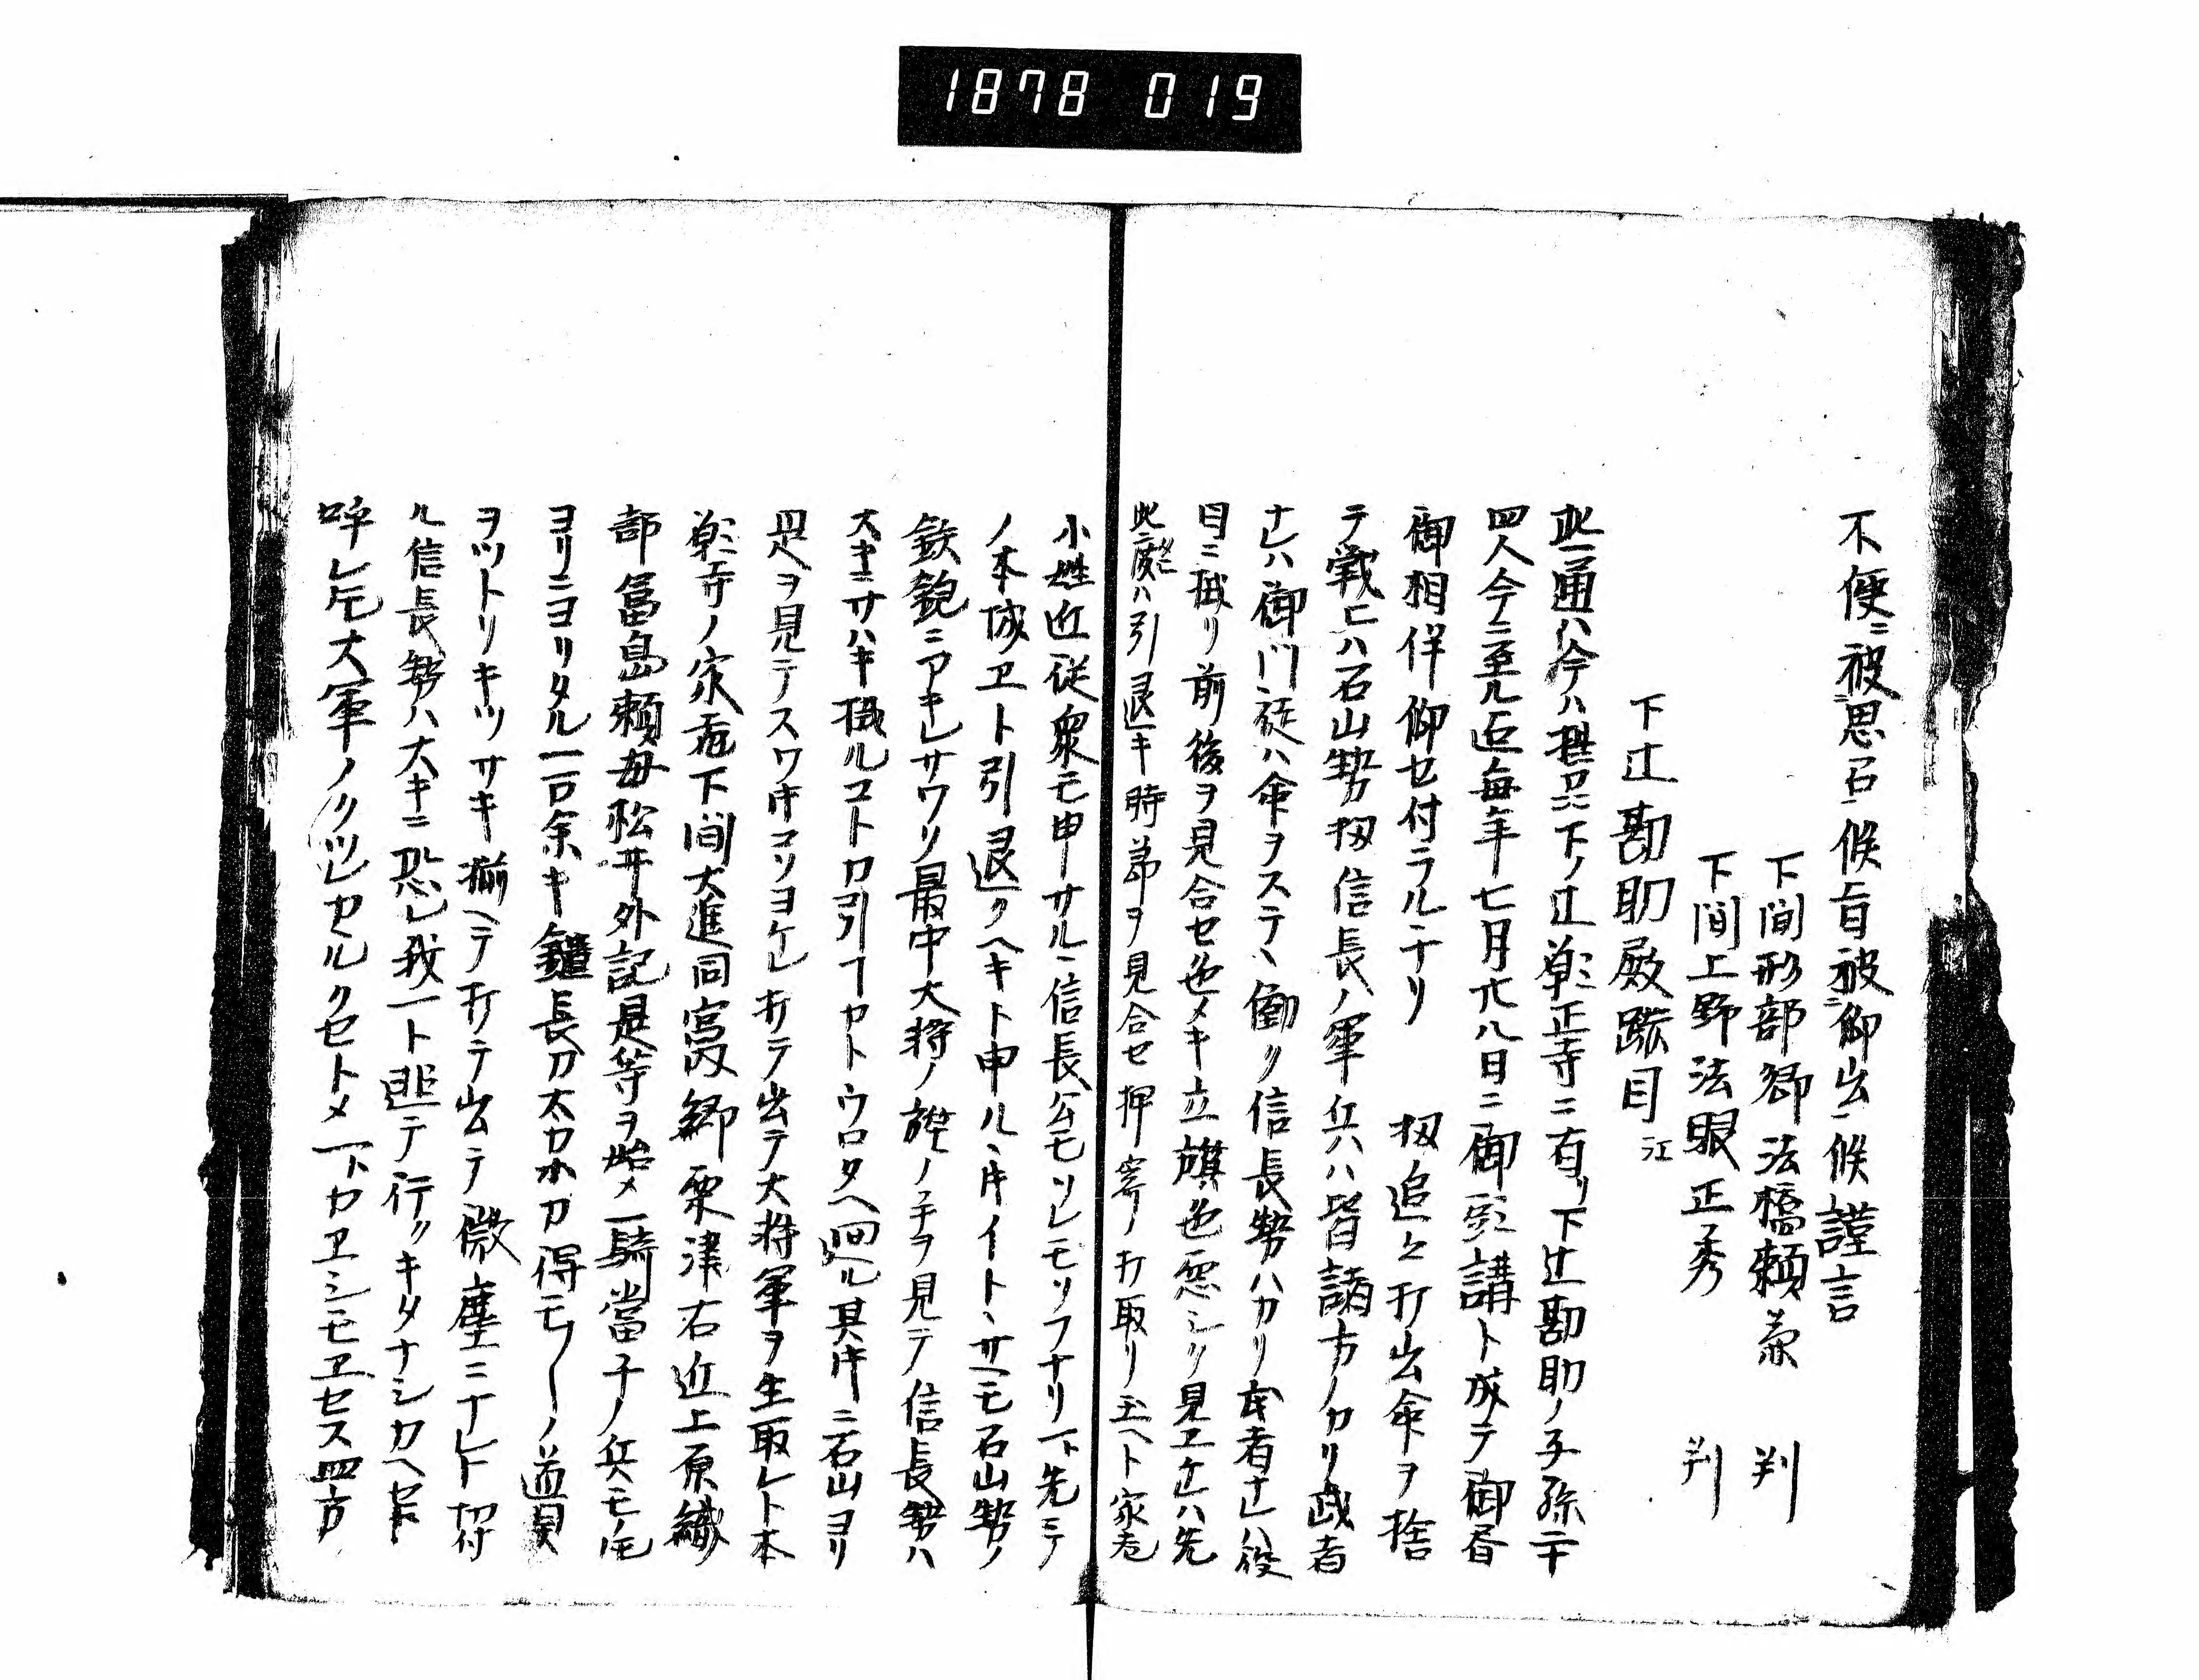 1878 019
不便ニ被思召候旨被仰出候謹言
下間形部卿法橋頼兼 判
下間上野法眼正秀 判
下辻勘助殿跡目江
此一通ハ今ハ摂州下ノ辻乗正寺ニ有リ下辻勘助ノ子孫二十
四人今ニ至ル迄毎年七月廿八日ニ御頭講ト成テ御昼
御相伴仰セ付ラルヽナリ 扨追々打出命ヲ捨
テ戦ヒハ石山勢扨信長ノ軍兵ハ皆諸方ノカリ武者
ナレハ御門徒ハ命ヲステヽ働ク信長勢ハカリ武者ナレハ役
目ニ拭リ前後ヲ見合セ色メキ立旗色悪シク見エケレハ先
此度ハ引退キ時節ヲ見合セ押寄ノ打取リ玉ヘト家老
小姓近従衆モ申サルヽ信長公モソレモソフナリト先ニテ
ノ本城エト引退クヘキト申ルヽ時イトヽサヘモ石山勢ノ
鉄鉋ニアキレサワク最中大将ノ旗ノ手ヲ見テ信長勢ハ
大キニサハキ扨ルコトカ引フヤトウロタヘ廻ル其時ニ石山ヨリ
是ヲ見テスワ時コソヨケレ打テ出テ大将軍ヲ生取レト本
願寺ノ家老下間大進同宮内卿粟津右近上原織
部富島頼母松井外記是等ヲ始メ一騎當千ノ兵モ我
ヨリニヨリタル一百余キ鑓長刀太刀小刀得モノ〳〵ノ道具
ヲツトリキツサキ揃ヘテ打テ出テ微塵ニナレト切付
ル信長勢ハ大キニ恐レ我一ト迯テ行クキタナシカヘセト
呼レ𪜈大軍ノクツレセルクセトメ一トカエシモエセス四方